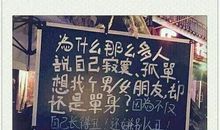 為什么那么多人
說自己寂寞、孤單
想找个男女朋友、却
还是單身？因為不仅
自己长得丑 还嫌别人丑